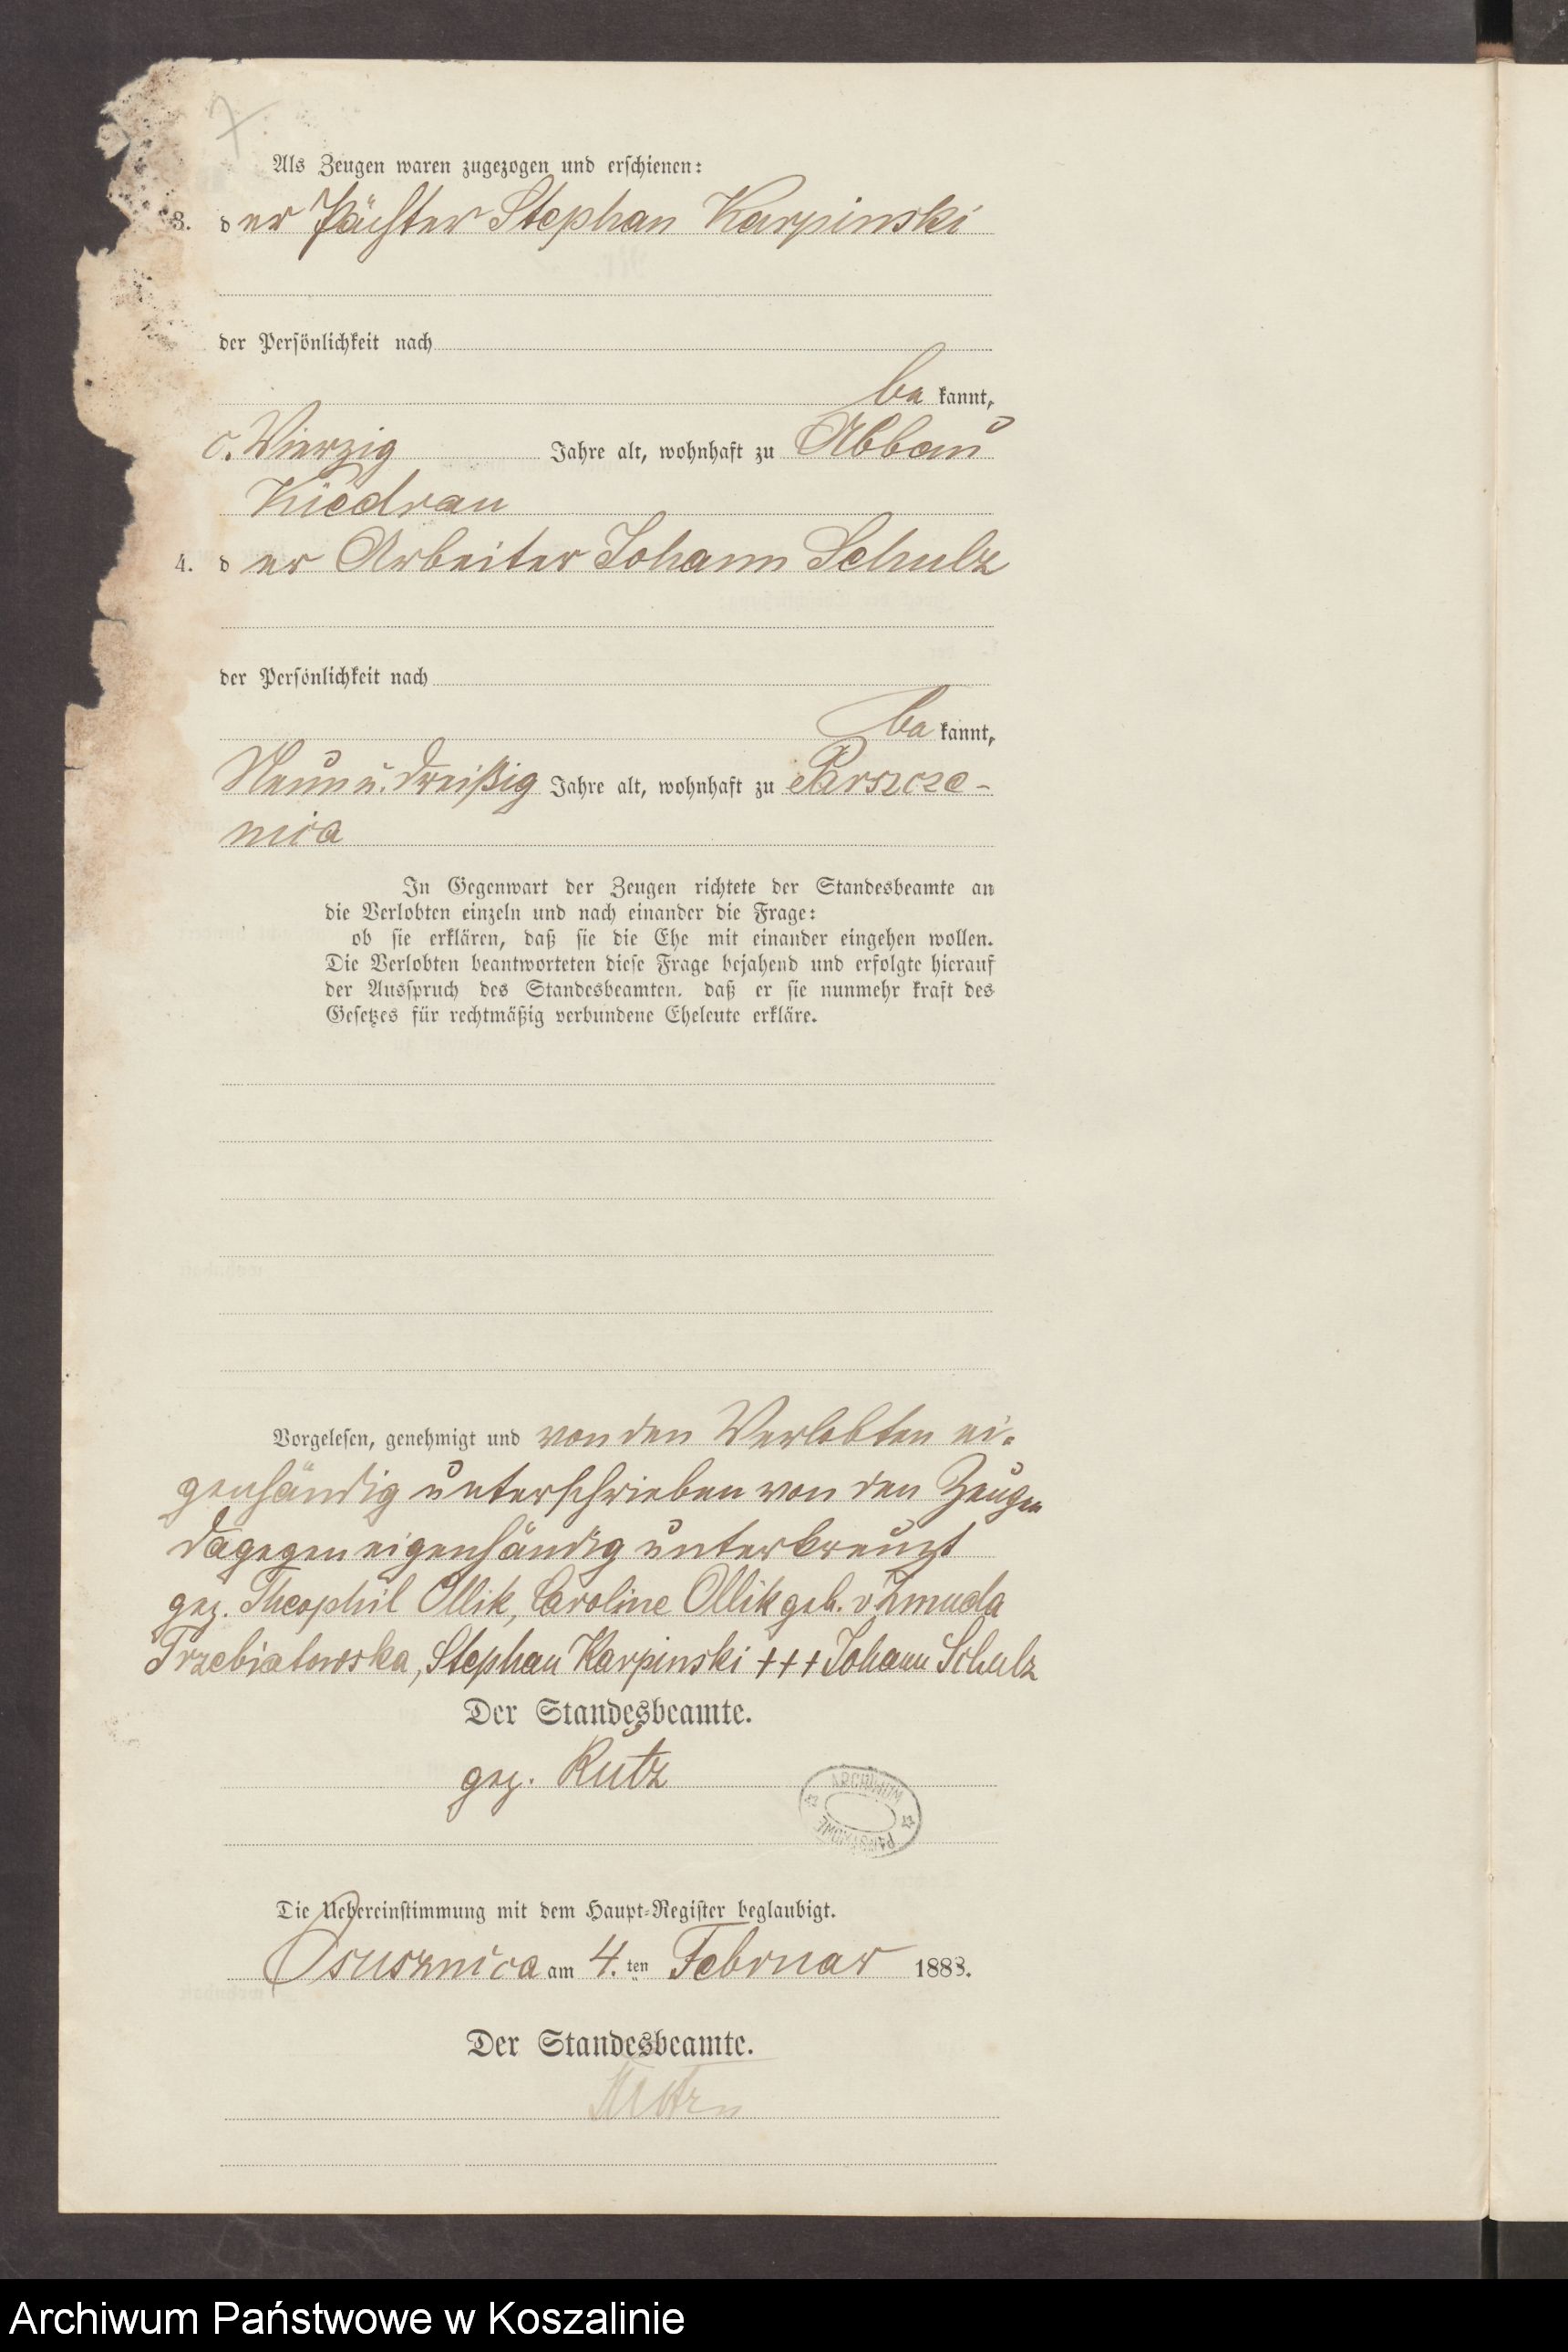 7.
Als Zeugen waren zugezogen und erschienen:
3. der Pächter Stephan Karpinski
der Persönlichkeit nach
be kannt,
c. Vierzig Jahre alt, wohnhaft zu Abbau
Kiedrau
4. der Arbeiter Johann Schulz
der Persönlichkeit nach
be kannt,
Neun u. dreißig Jahre alt, wohnhaft zu Parszcze-
nica
In Gegenwart der Zeugen richtete der Standesbeamte an
die Verlobten einzeln und nach einander die Frage:
ob sie erklären, daß sie die Ehe mit einander eingehen wollen.
Die Verlobten beantworteten diese Frage bejahend und erfolgte hierauf
der Ausspruch des Standesbeamten. daß er sie nunmehr kraft des
Gesetzes für rechtmäßig verbundene Eheleute erkläre.
Vorgelesen, genehmigt und von den Verlobten ei-
genhändig unterschrieben von den Zeugen
dagegen eigenhändig unterkreuzt
gez. Theophil Ollik, Caroline Ollik geb. v Zmuda
Trzebiatowska, Stephan Karpinski +++ Johann Schulz
Der Standesbeamte.
gez. Rutz
ARCHIWUM PAŃSTWOWE
Die Uebereinstimmung mit dem Haupt-Register beglaubigt.
Osusznica am 4. ten Februar 1883.
Der Standesbeamte.
Archiwum Państwowe w Koszalinie